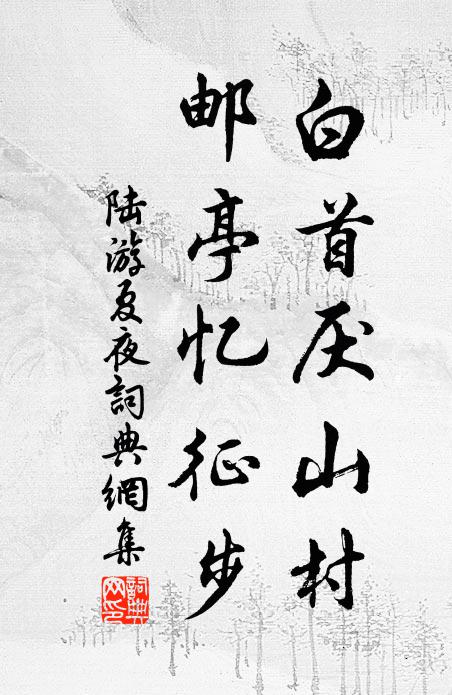 白首厌山村
邮亭忆征步
陆游夏夜詞典網集
詞典
网印